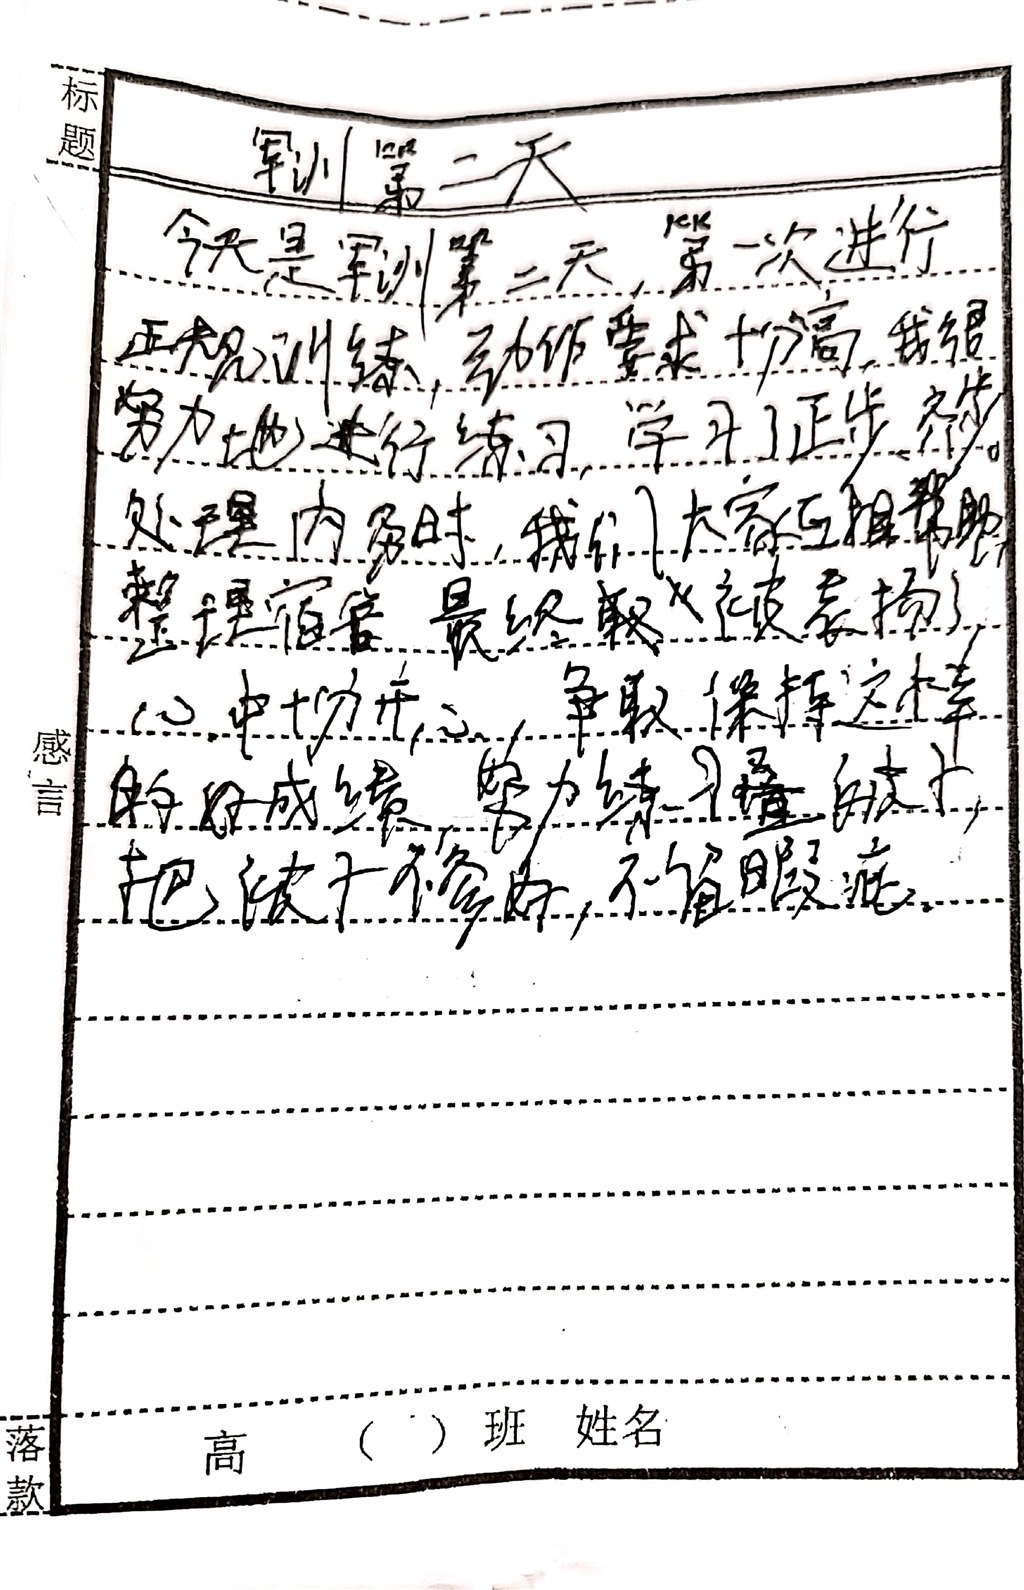 标题
军训第二天
今天是军训第二天,第一次进行
正规训练,动作要求十分高,我很
努力地进行练习,学习了正步、齐步。
处理内务时,我们大家互相帮助,
整理宿舍 最终 被表扬了,
心中十分开心,争取保持这样
的好成绩,努力练习叠被子,
把被子 修好,不留瑕疵。
感言
落款
高 ( ) 班 姓名